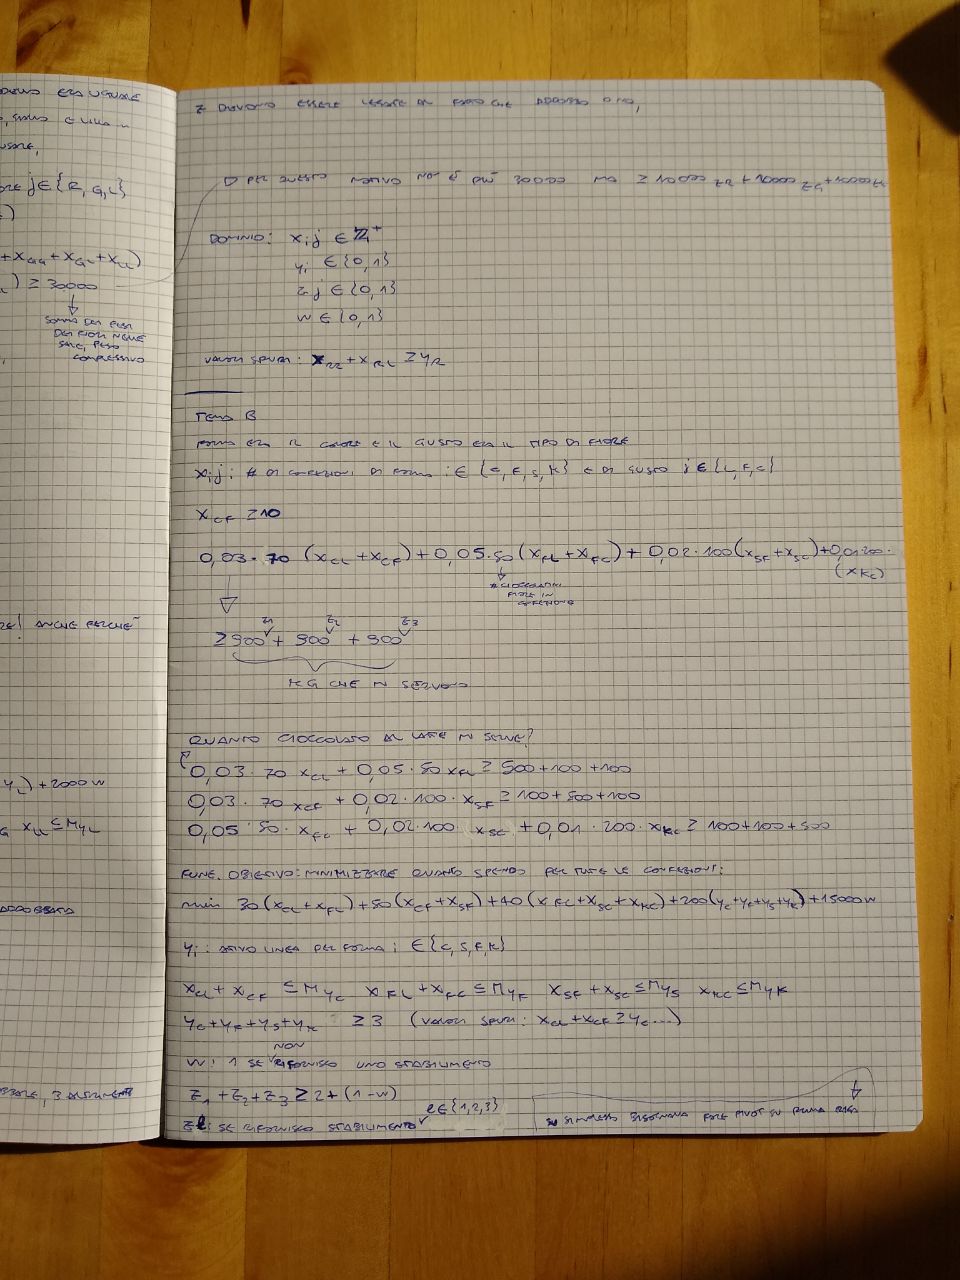 DEVONO
, SIANO
j ∈ {R, G, L}
+ x_GG + x_GL + x_LL)
) ≥ 30000
SOMMA DEI PESI
DEI FIORI NELLE
PESO
COMPLESSIVO
ANCHE PERCHÉ
y_L) + 2000 w
x_LL ≤ M y_L
ADDOBBATA
, 3 ALTRIMENTI
Z DEVONO ESSERE LEGATE AL FATTO CHE ADDOBBO O NO,
PER QUESTO MOTIVO NON È PIÙ 30000 MA ≥ 10000 z_R + 10000 z_G + 10000 z_L
DOMINIO: x_ij ∈ ℤ⁺
y_i ∈ {0,1}
z_j ∈ {0,1}
w ∈ {0,1}
VALORI SPURI: x_RR + x_RL ≥ y_R
TEMA B
FORMA ERA IL COLORE E IL GUSTO ERA IL TIPO DI FIORE
x_ij: # DI CONFEZIONI DI FORMA i ∈ {C, F, S, K} E DI GUSTO j ∈ {L, F, C}
x_CF ≥ 10
0,03 · 70 (x_CL + x_CF) + 0,05 · 50 (x_FL + x_FC) + 0,02 · 100 (x_SF + x_SC) + 0,01 · 200 ·
(x_KC)
# CIOCCOLATINI
FIORE IN
CONFEZIONE
z1 z2 z3
≥ 900 + 900 + 900
KG CHE MI SERVONO
QUANTO CIOCCOLATO AL LATTE MI SERVE?
0,03 · 70 x_CL + 0,05 · 50 x_FL ≥ 500 + 100 + 100
0,03 · 70 x_CF + 0,02 · 100 · x_SF ≥ 100 + 500 + 100
0,05 · 50 · x_FC + 0,02 · 100 x_SC + 0,01 · 200 · x_KC ≥ 100 + 100 + 500
FUNZ. OBIETTIVO: MINIMIZZARE QUANTO SPENDO PER TUTTE LE CONFEZIONI:
min 30(x_CL + x_FL) + 50(x_CF + x_SF) + 40(x_FC + x_SC + x_KC) + 200(y_C + y_F + y_S + y_K) + 15000 w
y_i: ATTIVO LINEA PER FORMA i ∈ {C, S, F, K}
x_CL + x_CF ≤ M y_C x_FL + x_FC ≤ M y_F x_SF + x_SC ≤ M y_S x_KC ≤ M y_K
y_C + y_F + y_S + y_K ≥ 3 (VALORI SPURI: x_CL + x_CF ≥ y_C ...)
NON
w: 1 SE RIFORNISCO UNO STABILIMENTO
z_1 + z_2 + z_3 ≥ 2 + (1 - w)
z_l: SE RIFORNISCO STABILIMENTO l ∈ {1,2,3}
SIMPLESSO BISOGNAVA FARE PIVOT SU PRIMA RIGA